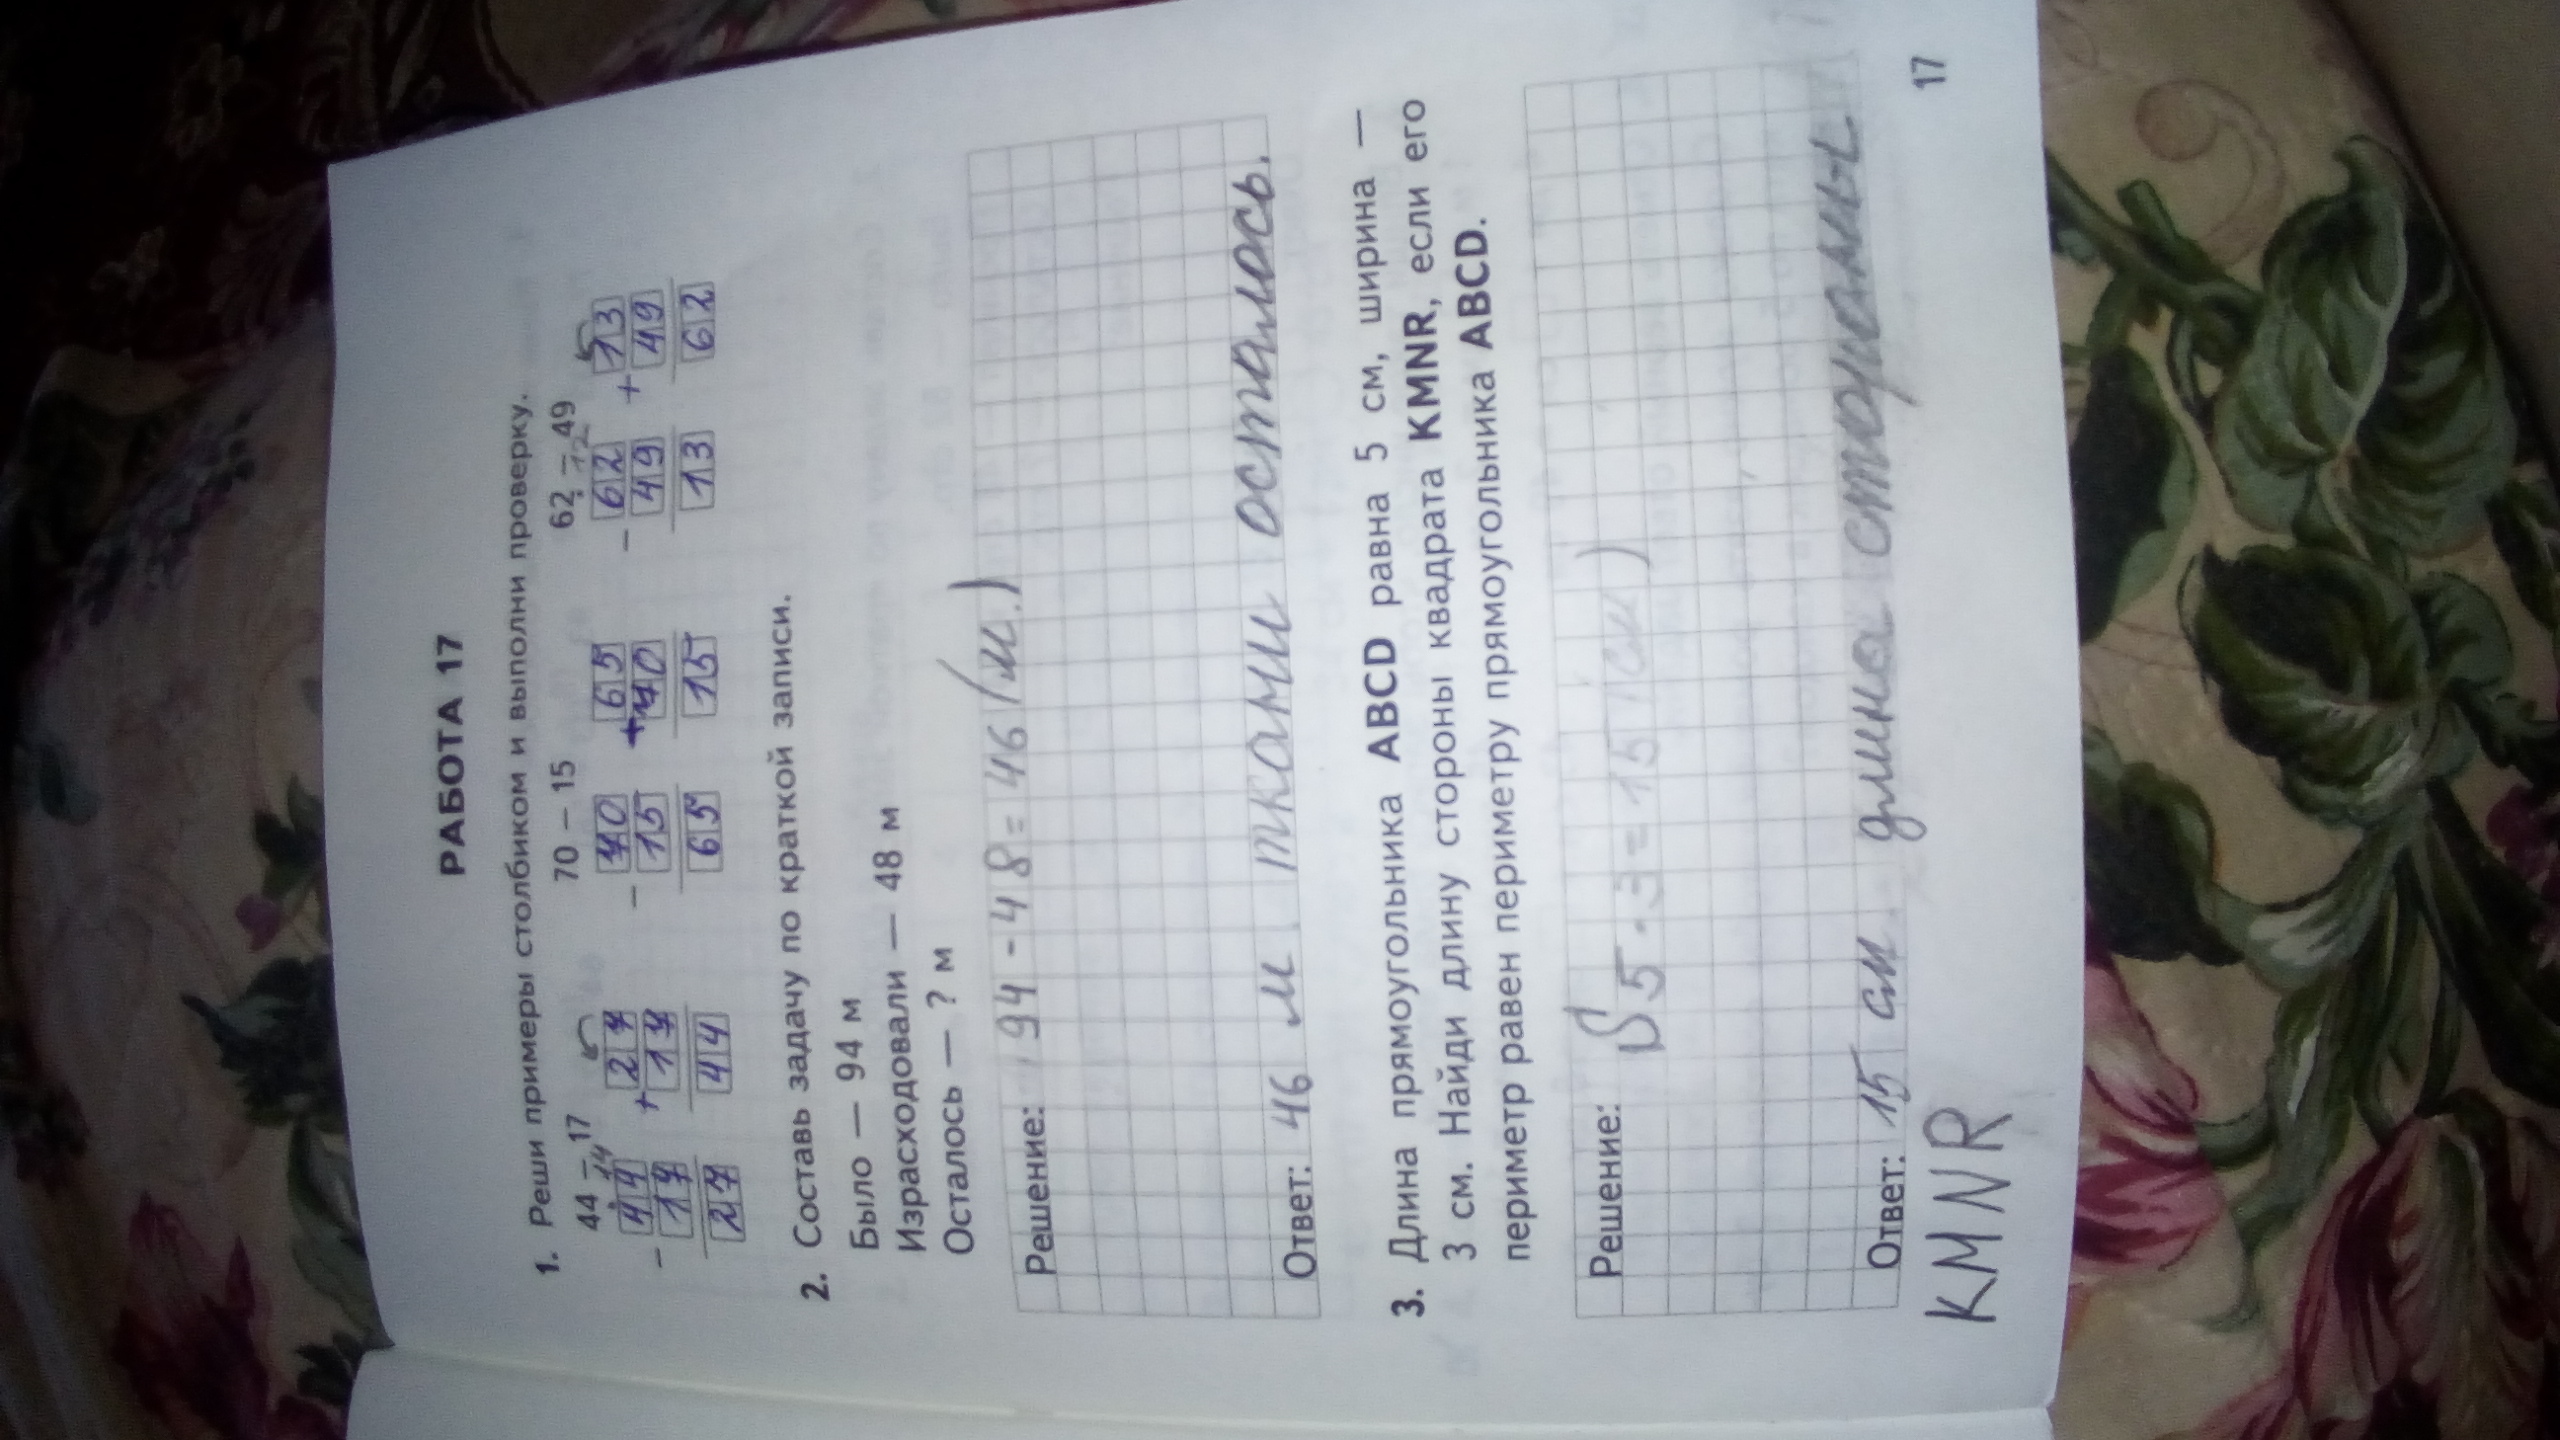 РАБОТА 17
1. Реши примеры столбиком и выполни проверку.
44 − 17 70 − 15 62 − 49
14 12
− 44 + 27 − 70 + 65 − 62 + 13
17 17 15 70 49 49
27 44 65 15 13 62
2. Составь задачу по краткой записи.
Было — 94 м
Израсходовали — 48 м
Осталось — ? м
Решение: 94 - 48 = 46 (м.)
Ответ: 46 м ткани осталось.
3. Длина прямоугольника ABCD равна 5 см, ширина —
3 см. Найди длину стороны квадрата KMNR, если его
периметр равен периметру прямоугольника ABCD.
Решение:
S 5 · 3 = 15 (см)
Ответ: 15 см длина стораны
KMNR
17